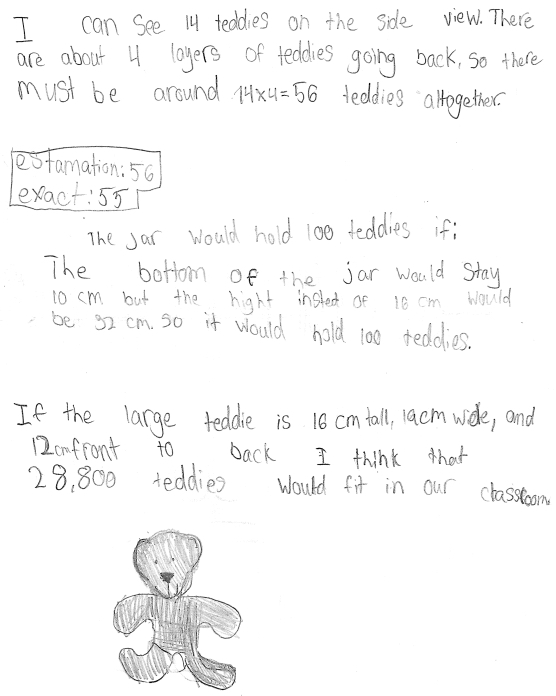 I can see 14 teddies on the side view. There
are about 4 layers of teddies going back, so there
must be around 14x4=56 teddies altogether.
estamation: 56
exact: 55
The jar would hold 100 teddies if;
The bottom of the jar would stay
10 cm but the hight insted of 18 cm would
be 32 cm. so it would hold 100 teddies.
If the large teddie is 16 cm tall, 19cm wide, and
12cm front to back I think that
28,800 teddies would fit in our classroom